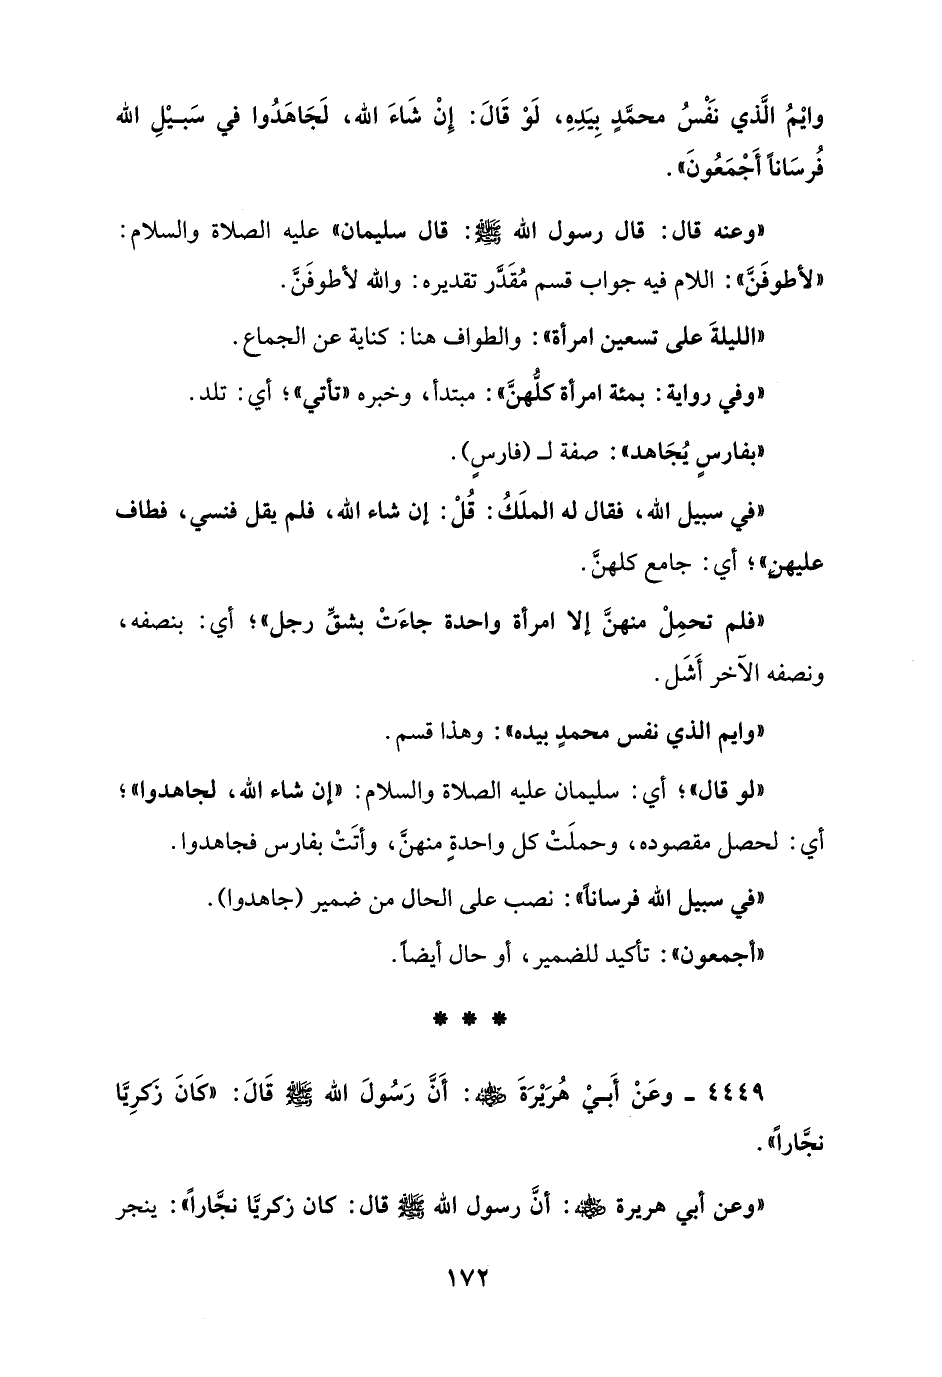 وايْمُ الَّذي نَفْسُ محمَّدٍ بِيَدِهِ، لَوْ قَالَ: إِنْ شَاءَ الله، لَجَاهَدُوا في سَبِيْلِ الله
فُرسَاناً أَجْمَعُونَ».
«وعنه قال: قال رسول الله ﷺ: قال سليمان» عليه الصلاة والسلام:
«لأطوفَنَّ»: اللام فيه جواب قسم مُقدَّر تقديره: والله لأطوفَنَّ.
«الليلةَ على تسعين امرأة»: والطواف هنا: كناية عن الجماع.
«وفي رواية: بمئة امرأة كلُّهنَّ»: مبتدأ، وخبره «تأتي»؛ أي: تلد.
«بفارسٍ يُجَاهد»: صفة لـ (فارسٍ).
«في سبيل الله، فقال له الملَكُ: قُلْ: إن شاء الله، فلم يقل فنسي، فطاف
عليهن»؛ أي: جامع كلهنَّ.
«فلم تحمِلْ منهنَّ إلا امرأة واحدة جاءَتْ بشقِّ رجل»؛ أي: بنصفه،
ونصفه الآخر أَشَل.
«وايم الذي نفس محمدٍ بيده»: وهذا قسم.
«لو قال»؛ أي: سليمان عليه الصلاة والسلام: «إن شاء الله، لجاهدوا»؛
أي: لحصل مقصوده، وحملَتْ كل واحدةٍ منهنَّ، وأتَتْ بفارس فجاهدوا.
«في سبيل الله فرساناً»: نصب على الحال من ضمير (جاهدوا).
«أجمعون»: تأكيد للضمير، أو حال أيضاً.
* * *
٤٤٤٩ - وعَنْ أَبيْ هُرَيْرَةَ ﵁: أَنَّ رَسُولَ الله ﷺ قَالَ: «كَانَ زَكرِيَّا
نجَّاراً».
«وعن أبي هريرة ﵁: أنَّ رسول الله ﷺ قال: كان زكريَّا نجَّاراً»: ينجر
١٧٢